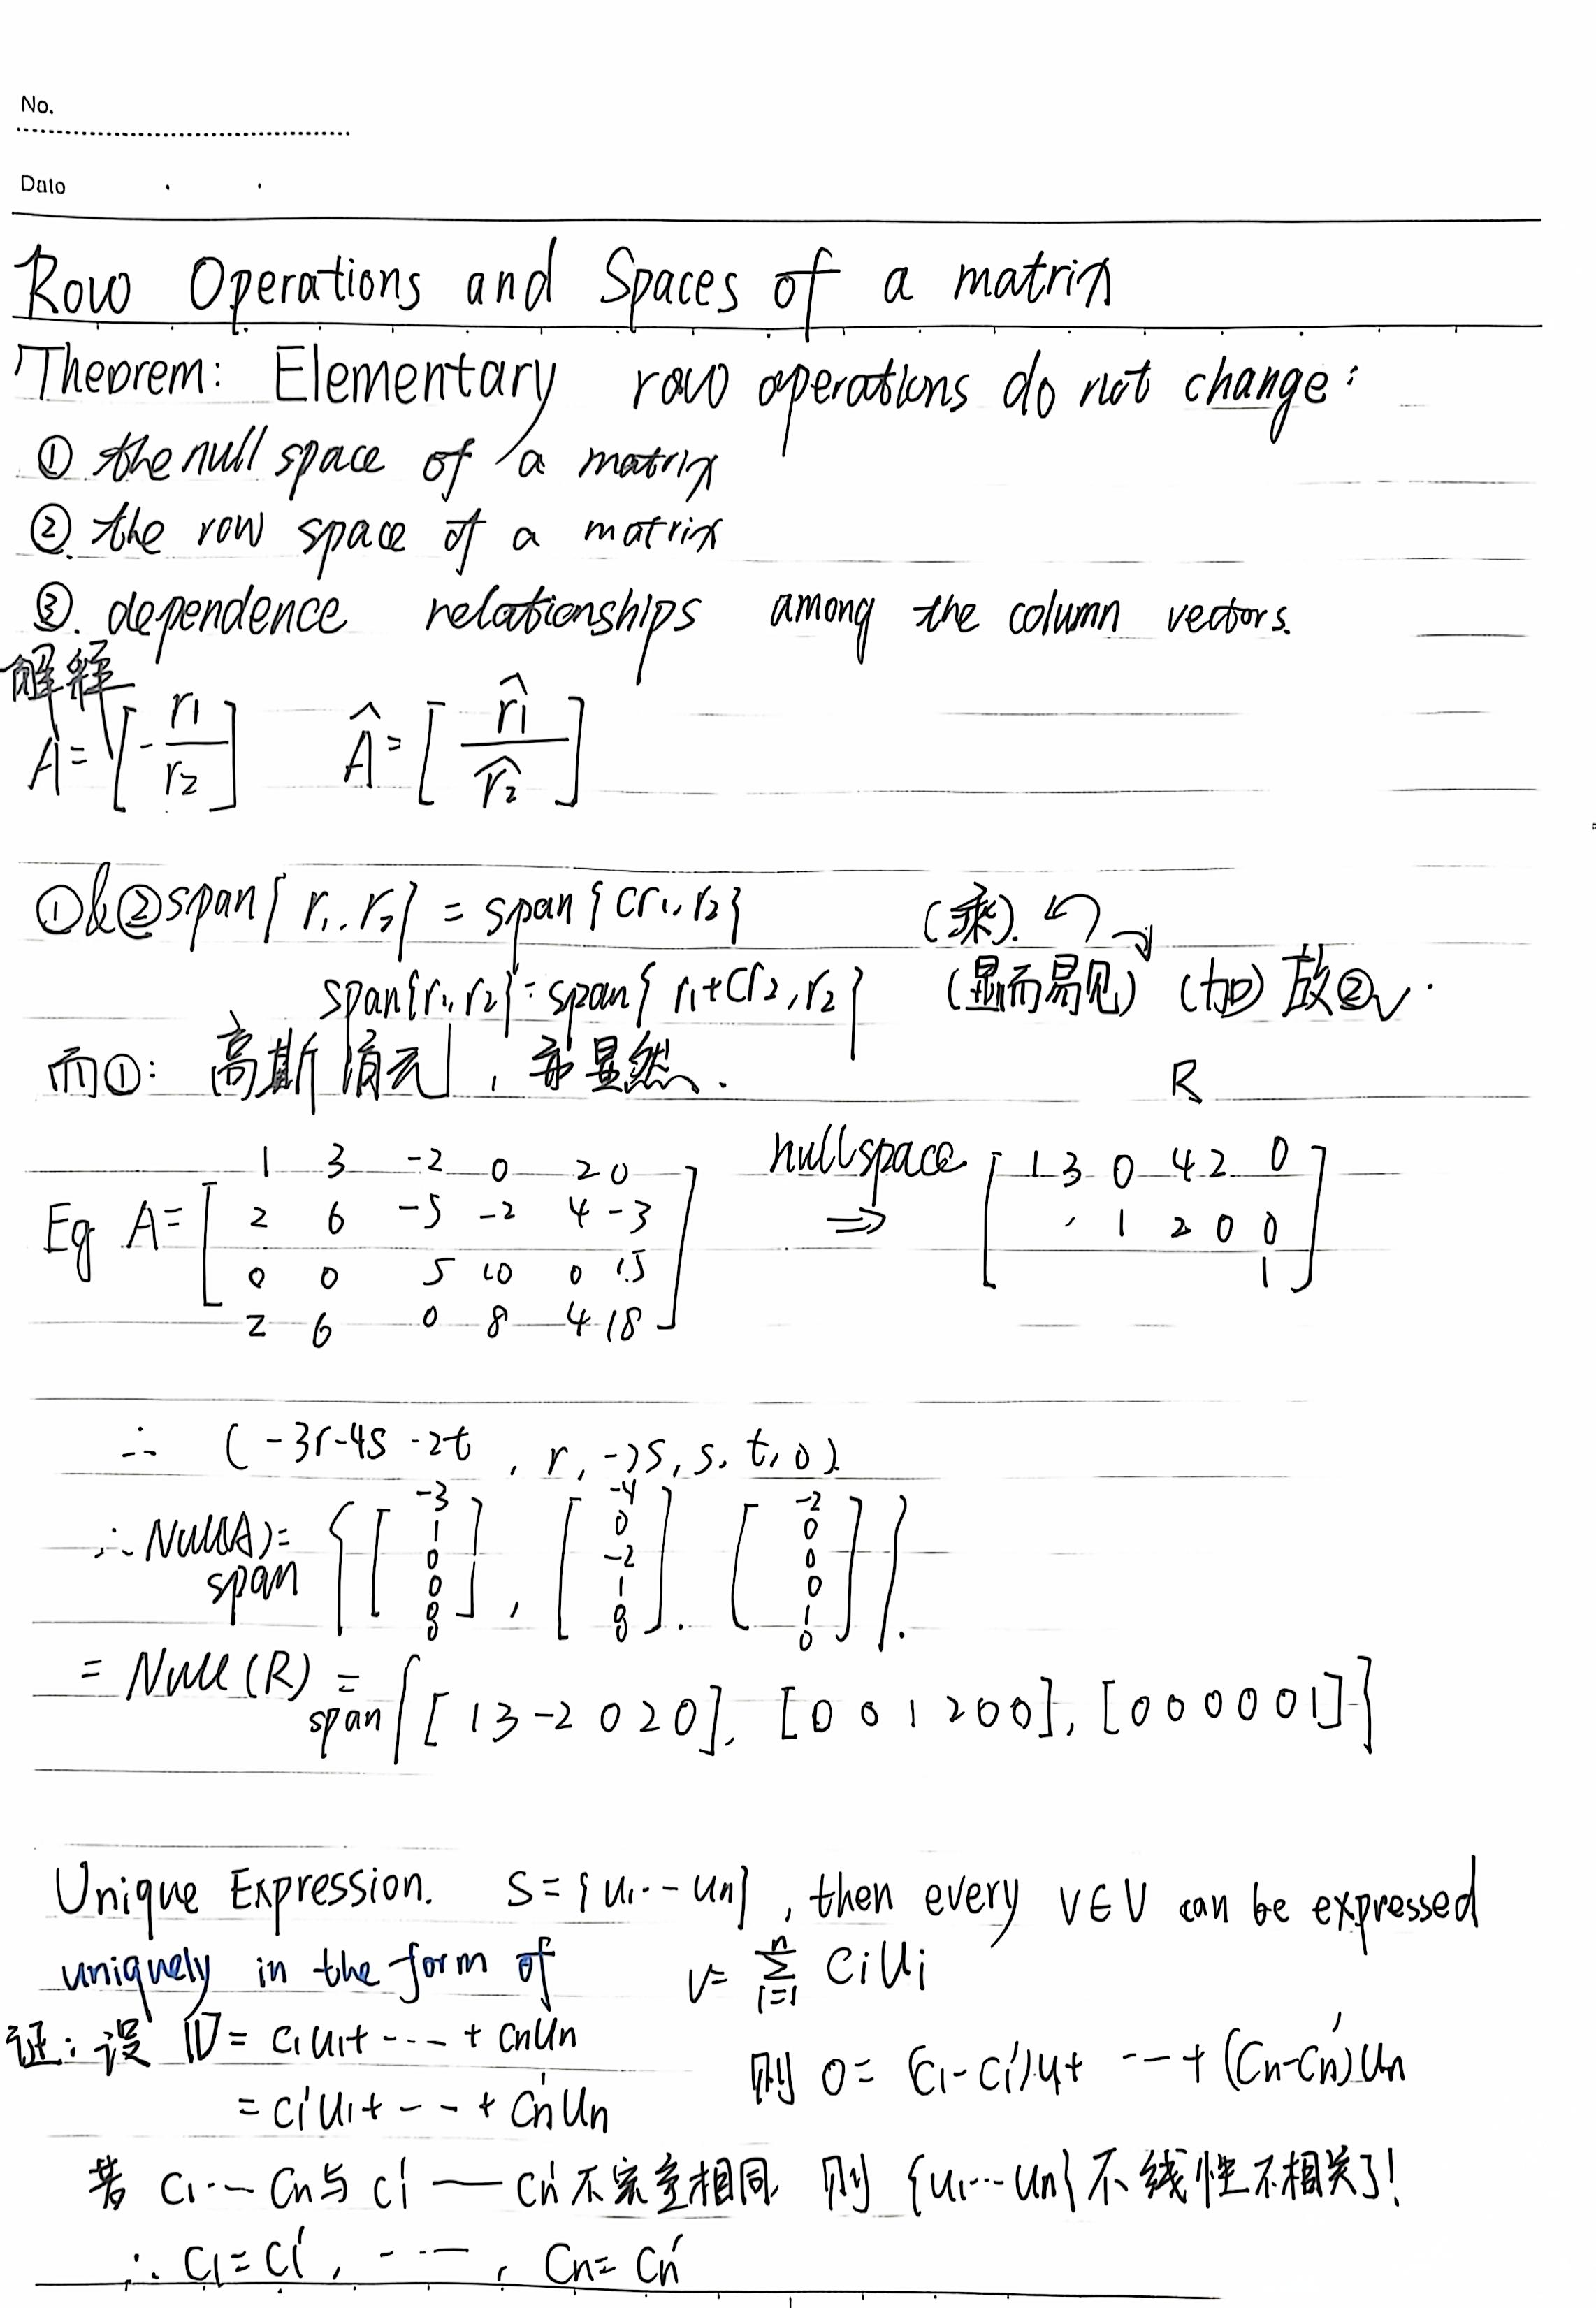 No.
Date
Row Operations and Spaces of a matrix
Theorem: Elementary row operations do not change:
① the null space of a matrix
② the row space of a matrix
③. dependence relationships among the column vectors.
解释
A = [ r1 / r2 ]  Â = [ r̂1 / r̂2 ]
①&② span{r1, r2} = span{cr1, r2} (乘).
span{r1, r2} = span{r1+cr2, r2} (显而易见) (加) 故②✓.
而①: 高斯消元, 亦显然.
R
1 3 -2 0 2 0 nullspace 1 3 0 4 2 0
Eg A = 2 6 -5 -2 4 -3 ⇒ . 1 2 0 0
0 0 5 10 0 15 1
2 6 0 8 4 18
∴ (-3r-4s-2t, r, -2s, s, t, 0)
∴ Null(A) = span { [-3 1 0 0 0 0], [-4 0 -2 1 0 0], [-2 0 0 0 1 0] }.
= Null(R) = span { [1 3 -2 0 2 0], [0 0 1 2 0 0], [0 0 0 0 0 1] }
Unique Expression. S = {u1 ... un}, then every v∈V can be expressed
uniquely in the form of v = Σ_{i=1}^{n} ciui
证: 设 V = c1u1 + ---- + cnun
= c1'u1 + --- + cn'un 则 0 = (c1-c1')u1 + --- + (cn-cn')un
若 c1 ... cn 与 c1' — cn' 不完全相同, 则 {u1...un} 不线性不相关了!
∴ c1 = c1', ----, cn = cn'